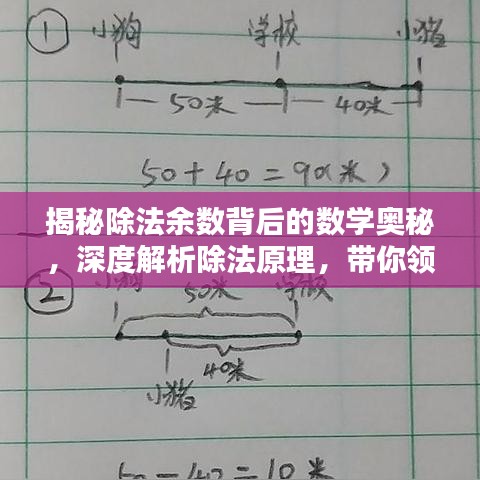 ① 小狗 学校 小猪
50米 40米
50+40=90(米)
揭秘除法余数背后的数学奥秘
，深度解析除法原理，带你领
② 50米 学校
40米
小猪
50-40=10米